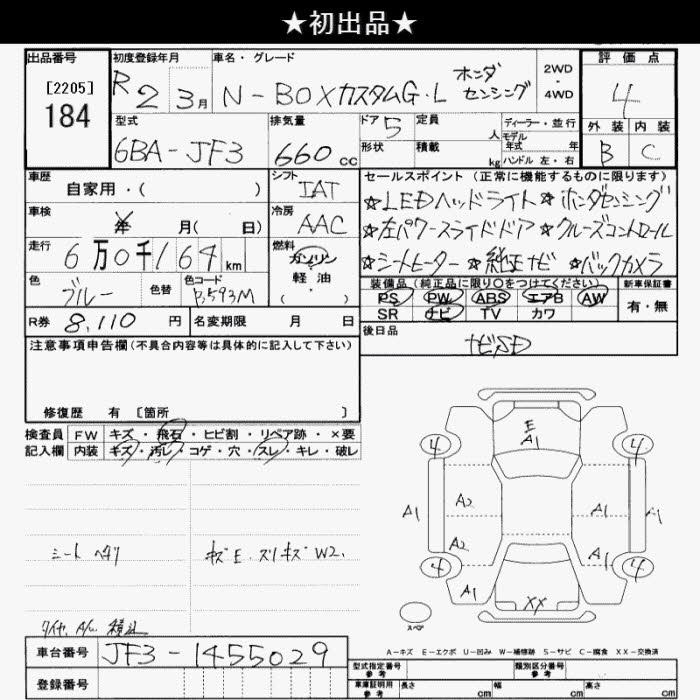 ★初出品★
出品番号
[2205]
184
初度登録年月
R 2 3月
車名・グレード
N-BOXカスタムG・L ホンダセンシング
2WD
・
4WD
評価点
4
外装 内装
B C
型式
6BA-JF3
排気量
660cc
ドア 5
定員 人
形状
積載 kg
ディーラー・並行
モデル年式 年
ハンドル 左・右
車歴
自家用・( )
シフト
IAT
車検
年 月( 日)
冷房
AAC
走行
6万0千164km
燃料
ガソリン
軽油
・( )
色
ブルー
色替
色コード
B,593M
R券 8,110円
名変期限 月 日
セールスポイント(正常に機能するものに限ります)
☆LEDヘッドライト ☆ホンダセンシング
☆左パワースライドドア ☆クルーズコントロール
☆シートヒーター ☆純正ナビ ☆バックカメラ
装備品(純正品に限り〇をつけてください)
PS PW ABS エアB AW
SR ナビ TV カワ
新車保証書
有・無
後日品
ナビSD
注意事項申告欄(不具合内容等は具体的に記入して下さい)
修復歴 有 〔箇所 〕
検査員 FW キズ・飛石・ヒビ割・リペア跡・×要
記入欄 内装 キズ・汚レ・コゲ・穴・スレ・キレ・破レ
シートヘタリ
キズE.スリキズW2.
タイヤ,A/W 積込
E
A1
4 4
A2 A1
A1 A1
A2 A1
4 4
A1
XX
スペア
A-キズ E-エクボ U-凹み W-補修跡 S-サビ C-腐食 XX-交換済
車台番号 JF3-1455029
登録番号
型式指定番号 参考
類別区分番号 参考
車庫証明用 参考
長さ cm 幅 cm 高さ cm